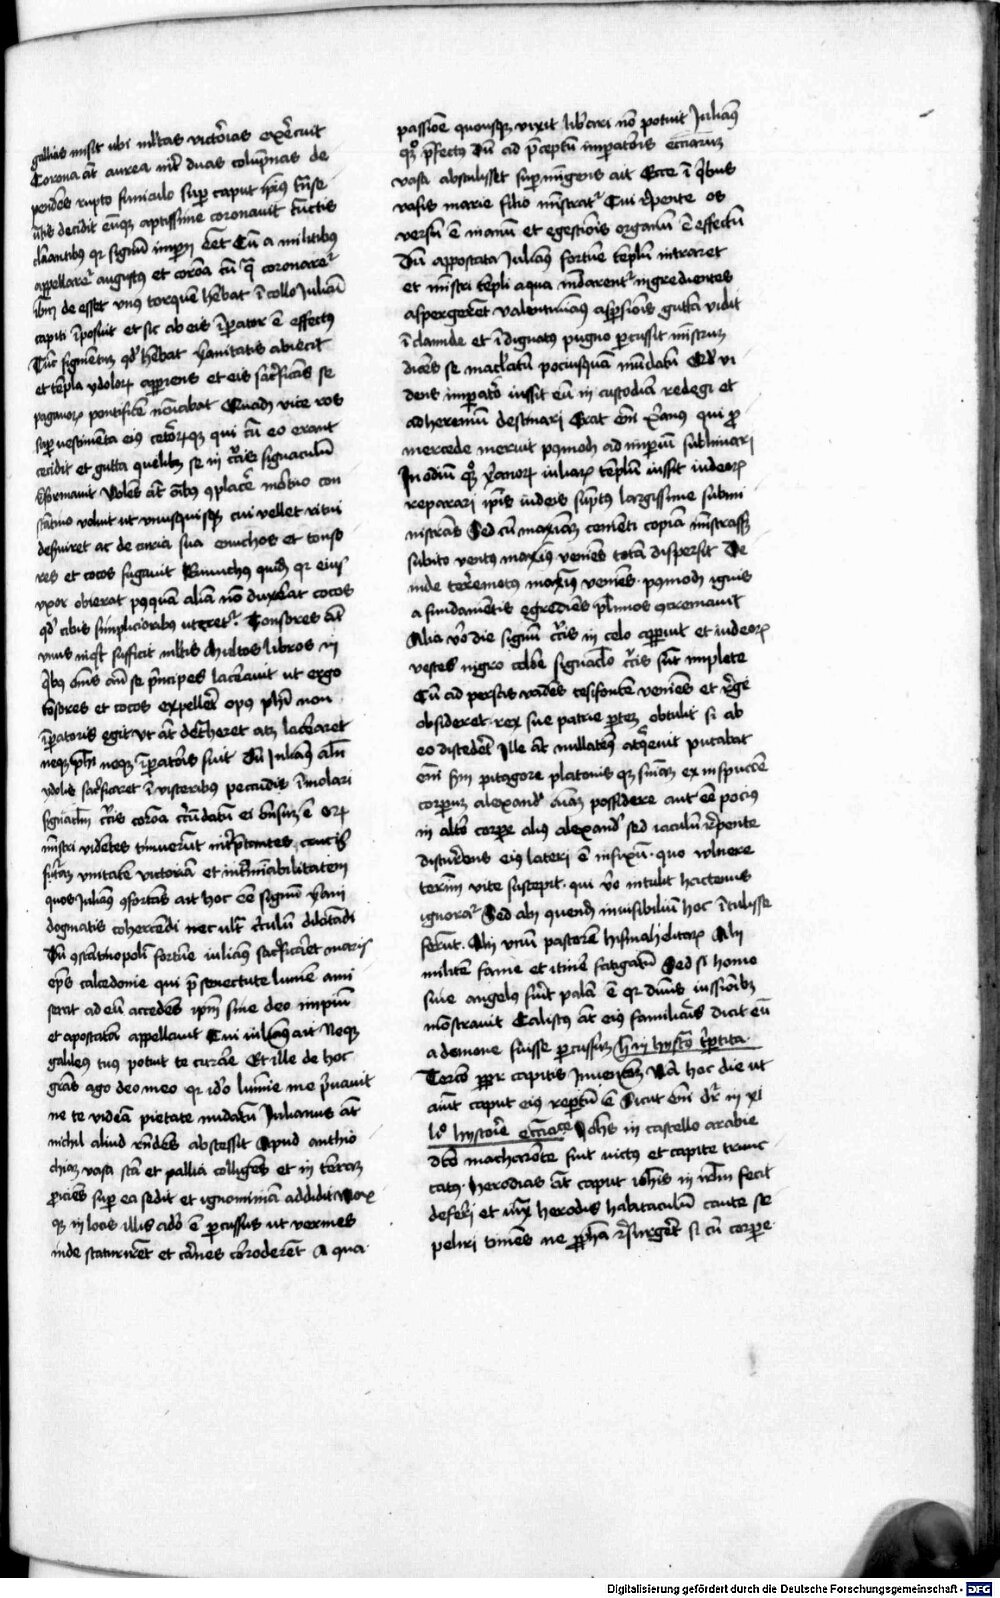 gallias misit ubi mltas victorias exercuit
Corona aut aurea inter duas columpnas de
pendes rupto funiculo super caput eius
decidit eumque aptissime coronavit cunctis
clamantibus qr signum imperii esset Cum a militibus
appellaretur augustus et corona cum qua coronaretur
ibidem de esset unus torquem habebat in collo Juliani
capiti imposuit et sic ab eis imperator est effectus
Tunc figmentum quod habebat xianitatis abiecit
et templa ydolorum aperiens et eis sacrificans se
paganorum pontificem nominabat Quadam vice ros
super vestimenta eius ceterorumque qui cum eo erant
cecidit et gutta quelibet se in crucis signaculum
formavit Volens autem omnibus placere mortuo con
stantino voluit ut unusquisque cui vellet ritui
deserviret ac de curia sua eunuchos et tonso
res et cocos fugavit Eunuchos quidem qr eius
uxor obierat postquam aliam non duxerat cocos
quod cibis simplicioribus uteretur Tonsores autem
unus inquit sufficit multis Multos libros in
quibus omnis ante se principes laceravit ut ergo
tonsores et cocos expelleret opus phi non
imperatoris egit ut autem detraheret atque laceraret
neque phi neque imperatoris fuit Dum Julianus autem
ydolis sacrificaret in visceribus pecudis immolari
signaculum crucis corona circundatum ei ostensum est Quod
ministri videntes timuerunt interpretantes crucis
futuram unitatem victoriam et interminabilitatem
quos Julianus confortans ait hoc esse signum xiani
dogmatis cohercendi nec ultra circulum dilatandi
Dum constantinopoli fortune iulianus sacrificaret maris
eps calcedonie qui pre senectute lumen ami
serat ad eum accedens ipsum sine deo impium
et apostatam appellavit Cui iulianus ait Neque
galileus tuus potuit te curare Et ille de hoc
gratias ago deo meo qr ideo lumine me privavit
ne te videam pietate nudatum Julianus autem
nichil aliud respondens abscessit Apud anthio
chiam vasa sancta et pallia colligens et in terram
proiciens super ea sedit et ignominiam addidit Mox
que in locis illis adeo est percussus ut vermes
inde scaturirent et carnes corroderent A qua
passione quousque vixit liberari non potuit Julianus
quoque prefectus Dum ad preceptum imperatoris ecclesiarum
vasa abstulisset super mingens ait Ecce in quibus
vasis marie filio ministratur Cui repente os
versum est in anum et egestionis organum est effectum
Dum apostata Julianus fortune templum intraret
et ministri templi aqua mundarentur ingredientes
aspergerent valentinianus aspersionis guttam vidit
in clamide et indignatus pugno percussit ministrum
dicens se maculatum pociusquam mundatum Quod vi
dens imperator iussit eum in custodiam redegi et
ad heremum destinari Erat enim xianus qui pro
mercede meruit postmodum ad imperium sublimari
In odium quoque xianorum iulianus templum iussit iudeorum
reparari ipsis iudeis sumptus largissime submi
nistrans Sed cum maximam cementi copiam ministrassent
subito ventus maximus veniens totam dispersit De
inde terremotus maximus veniens postmodum ignis
a fundamentis egrediens plurimos concremavit
Alia vero die signum crucis in celo apparuit et iudeorum
vestes nigro colore signaculo crucis sunt implete
Cum ad persas vadens tesifontem veniens et regem
obsideret rex sue patrie partem obtulit si ab
eo discederet Ille autem nullatenus acquievit putabat
enim secundum pitagore platonis que sententiam ex inspuccione
corporum alexandri animam possidere aut esse pocius
in altero corpore alius alexander sed iaculum repente
discurrens eius lateri est infixum quo vulnere
terminum vite suscepit qui vero intulit hactenus
ignoratur Sed alii quendam invisibilium hoc intulisse
ferunt Alii unum pastorem hismahelitarum Alii
militem fame et itinere fatigatum Sed si homo
sive angelus fuerit palam est qr divinis iussionibus
monstravit Calistus autem eius familiaris dicit eum
a demone fuisse percussum hec in hystoria tripertita
Tercio propter capitis Invencionem Nam hoc die ut
aiunt caput eius repertum est Sicut enim dicitur in xi
libro hystorie ecclesiastice Johannes in castello arabie
dicto macharonte fuit vinctus et capite trunc
catus herodias autem caput iohannis in iherusalem fecit
deferri et iuxta herodis habitaculum caute se
peliri timens ne propheta resurgeret si cum corpore
Digitalisierung gefördert durch die Deutsche Forschungsgemeinschaft - DFG